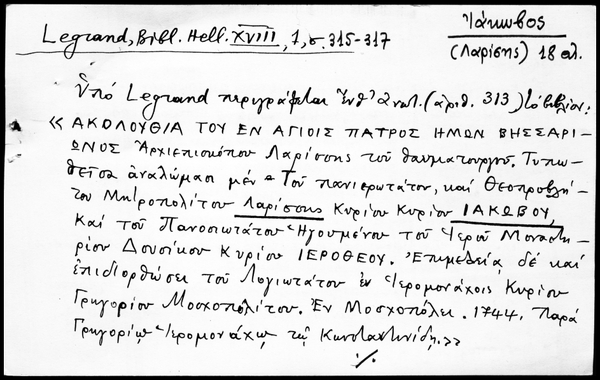 Ἰάκωβος
(Λαρίσης) 18 αἰ.
Legrand, Bibl. Hell. XVIII, 1, σ. 315-317
Ὑπό Legrand περιγράφεται (ἀριθ. 313) βιβλίον:
« ΑΚΟΛΟΥΘΙΑ ΤΟΥ ΕΝ ΑΓΙΟΙΣ ΠΑΤΡΟΣ ΗΜΩΝ ΒΗΣΣΑΡΙ-
ΩΝΟΣ Ἀρχιεπισκόπου Λαρίσσης τοῦ θαυματουργοῦ. Τυπω-
θεῖσα ἀναλώμασι μέν Τοῦ πανιερωτάτου, καί Θεοπροβλή-
του Μητροπολίτου Λαρίσσης Κυρίου Κυρίου ΙΑΚΩΒΟΥ,
Καί τοῦ Πανοσιωτάτου Ἡγουμένου τοῦ Ἱεροῦ Μοναστη-
ρίου Δουσίκου Κυρίου ΙΕΡΟΘΕΟΥ. Ἐπιμελείᾳ δέ καί
ἐπιδιορθώσει τοῦ Λογιωτάτου ἐν Ἱερομονάχοις Κυρίου
Γρηγορίου Μοσχοπολίτου. Ἐν Μοσχοπόλει. 1744. Παρά
Γρηγορίῳ Ἱερομονάχῳ τῷ Κωνσταντινίδῃ.»
./.